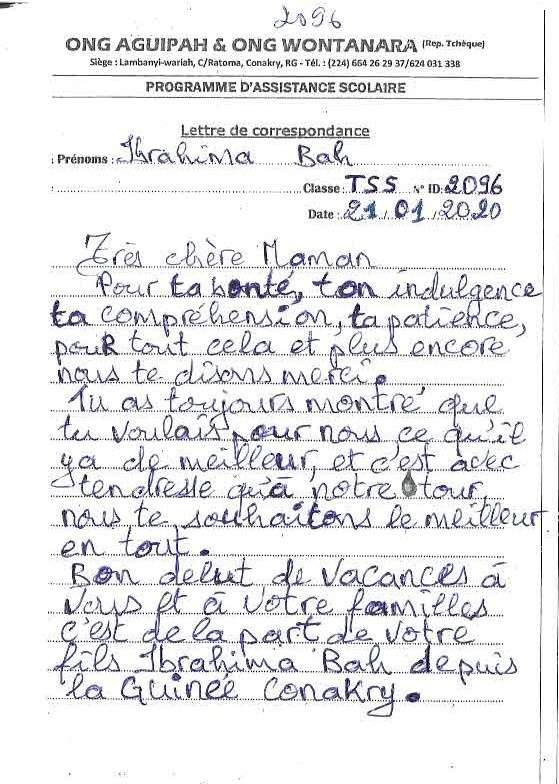 2096
ONG AGUIPAH & ONG WONTANARA (Rep. Tchèque)
Siège : Lambanyi-wariah, C/Ratoma, Conakry, RG - Tél. : (224) 664 26 29 37/624 031 338
PROGRAMME D'ASSISTANCE SCOLAIRE
Lettre de correspondance
Prénoms : Ibrahima Bah
Classe: TSS N° ID: 2096
Date : 21/01/2020
Très chère Maman
Pour ta bonté, ton indulgence
ta compréhension, ta patience,
pour tout cela et plus encore
nous te disons merci.
Tu as toujours montré que
tu voulais pour nous ce qu'il
ya de meilleur, et c'est avec
tendresse qu'à notre tour,
nous te souhaitons le meilleur
en tout.
Bon debut de vacances à
vous et à votre familles
c'est de la part de votre
fils Ibrahima Bah depuis
la Guinée Conakry.